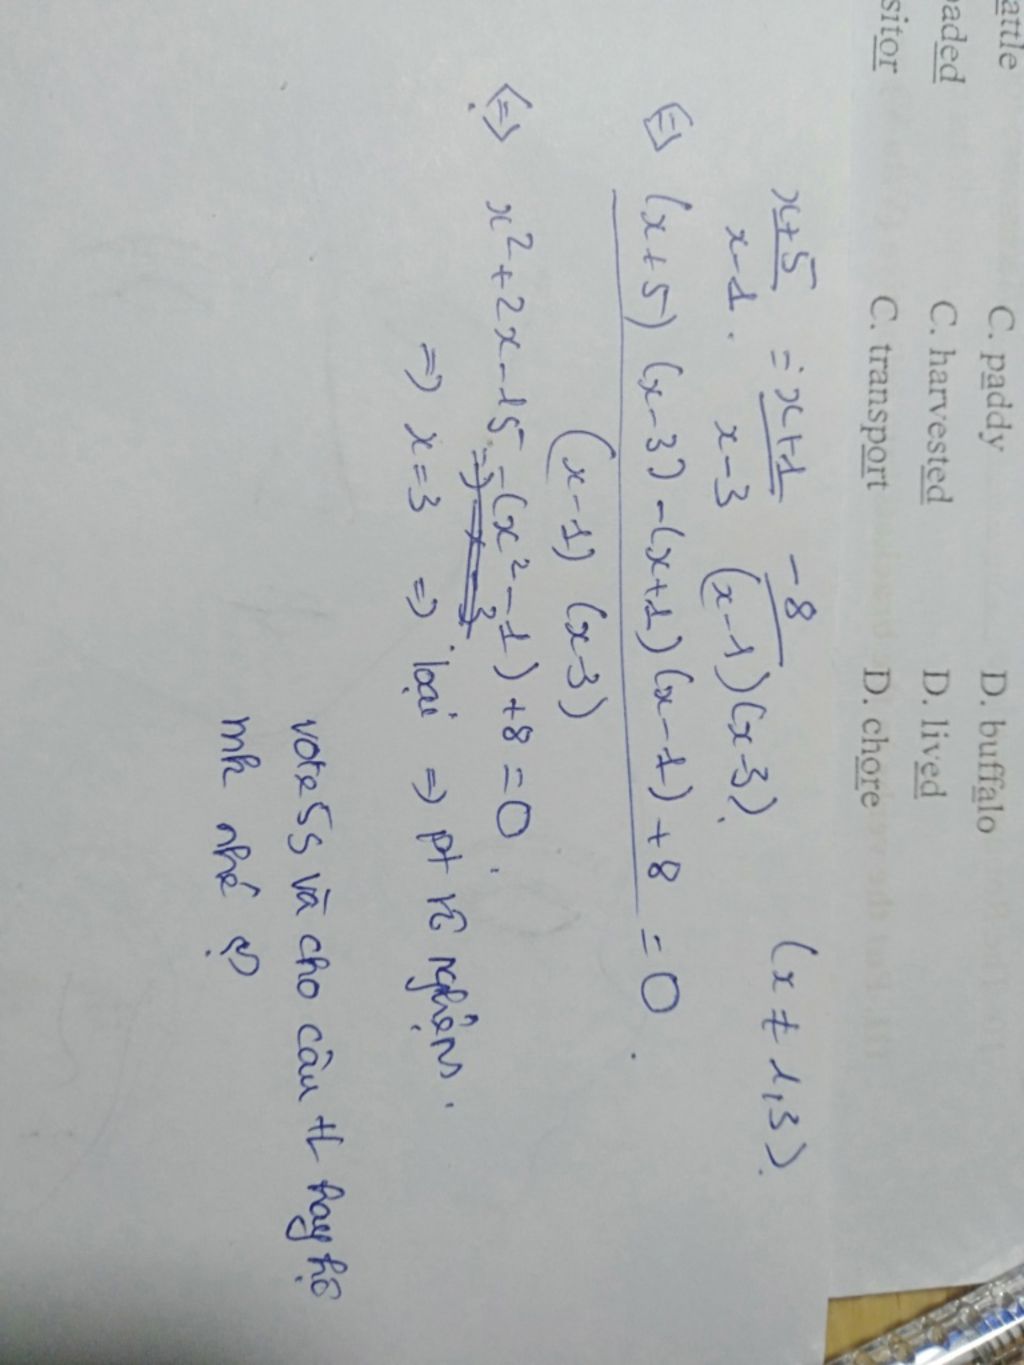 attle C. paddy D. buffalo
aded C. harvested D. lived
sitor C. transport D. chore
x+5/x-1 = x+1/x-3 - 8/(x-1)(x-3) (x ≠ 1,3).
(=) (x+5)(x-3)-(x+1)(x-1)+8 = 0
(x-1)(x-3)
(=) x²+2x-15-(x²-1)+8=0
=) x=3 =) loại =) pt vô nghiệm.
vote 5s và cho câu tl hay hộ
mk nhé ạ